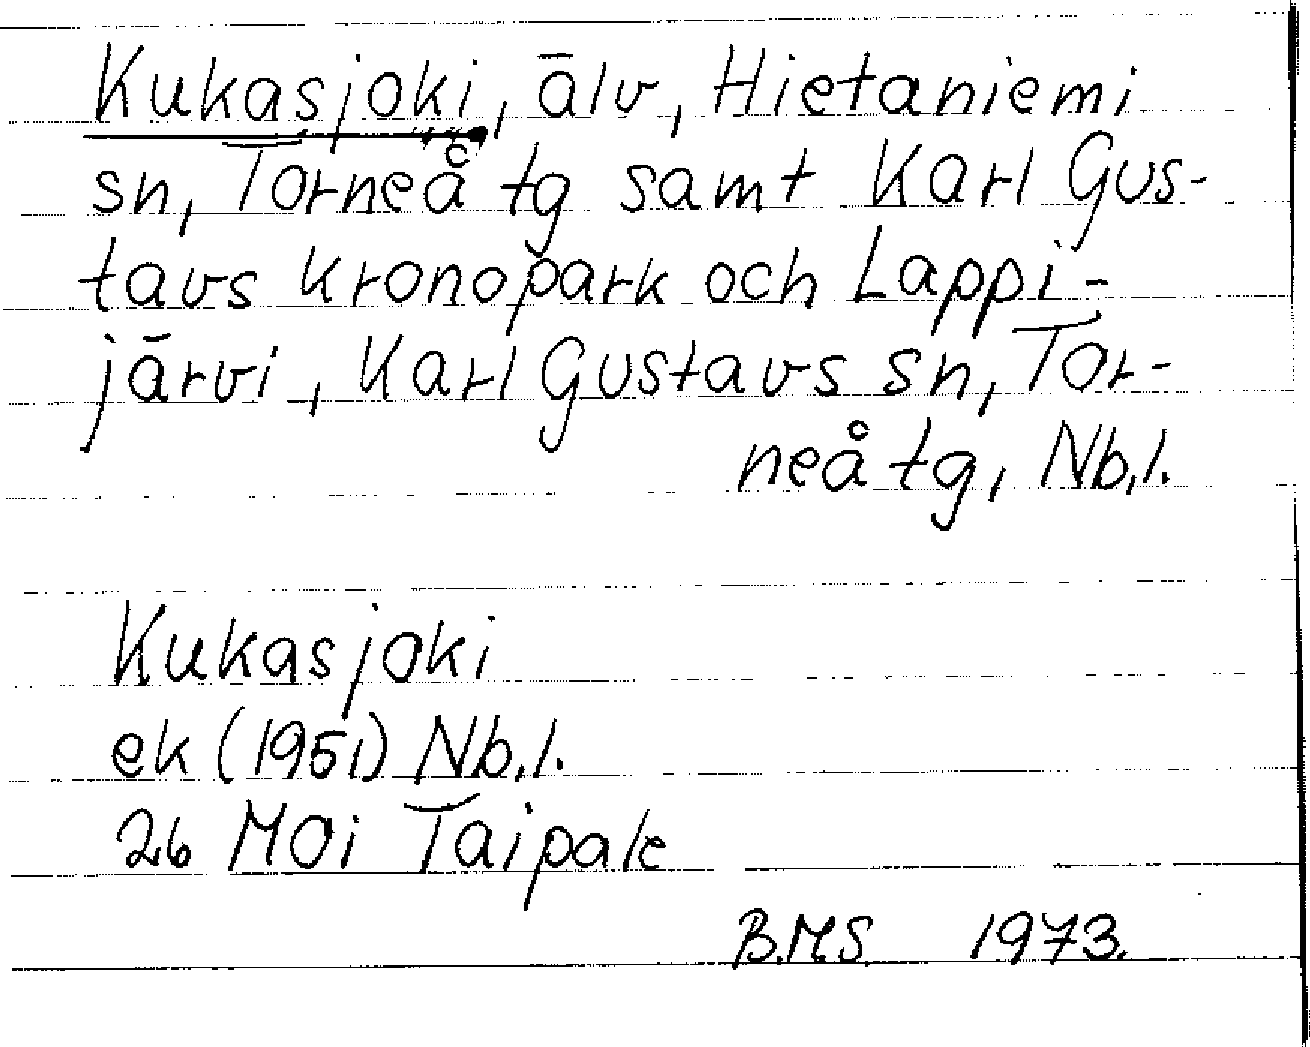 Kukasjoki, älv, Hietaniemi
sn, Torneå tg samt Karl Gus-
tavs kronopark och Lappi-
järvi, Karl Gustavs sn, Tor-
neå tg, Nb.l.
Kukasjoki
ek (1951) Nb.l.
26 MOi Taipale
B.MS. 1973.